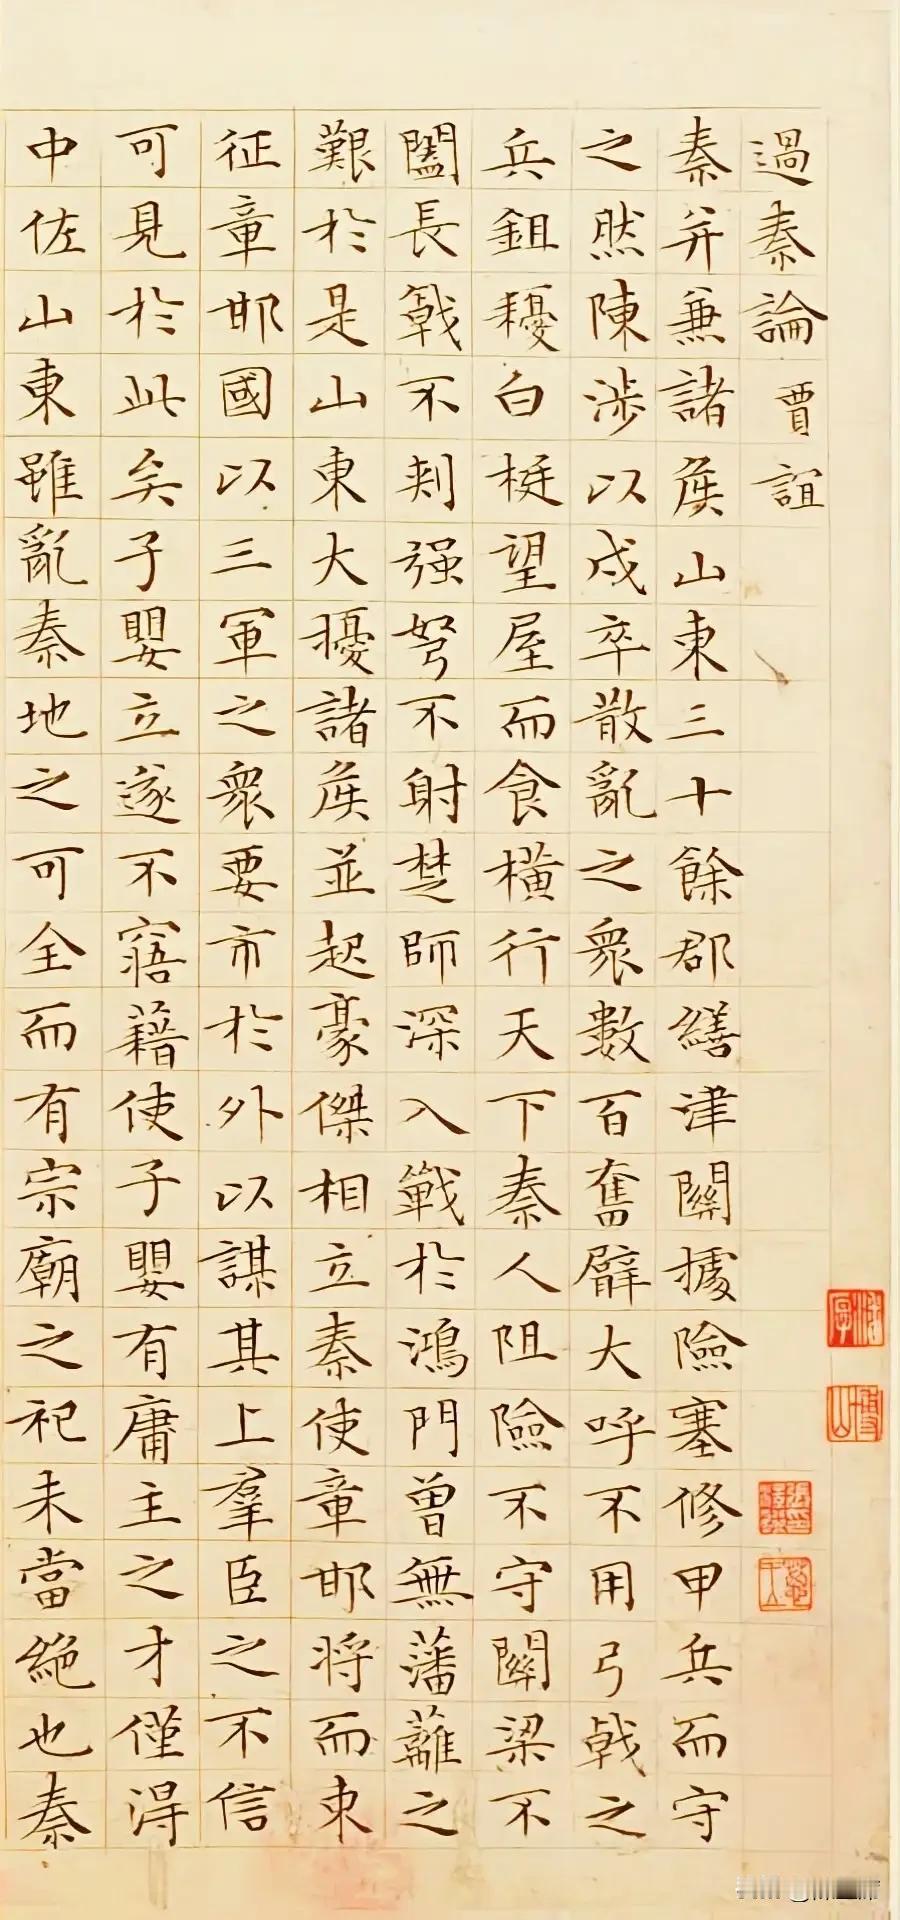 過秦論 賈誼
秦并兼諸侯山東三十餘郡繕津關據險塞修甲兵而守
之然陳涉以戍卒散亂之衆數百奮臂大呼不用弓戟之
兵鉏耰白梃望屋而食橫行天下秦人阻險不守關梁不
闔長戟不刺强弩不射楚師深入戰於鴻門曾無藩蘺之
艱於是山東大擾諸侯並起豪傑相立秦使章邯將而東
征章邯國以三軍之衆要市於外以謀其上羣臣之不信
可見於此矣子嬰立遂不寤藉使子嬰有庸主之才僅得
中佐山東雖亂秦地之可全而有宗廟之祀未當絶也秦